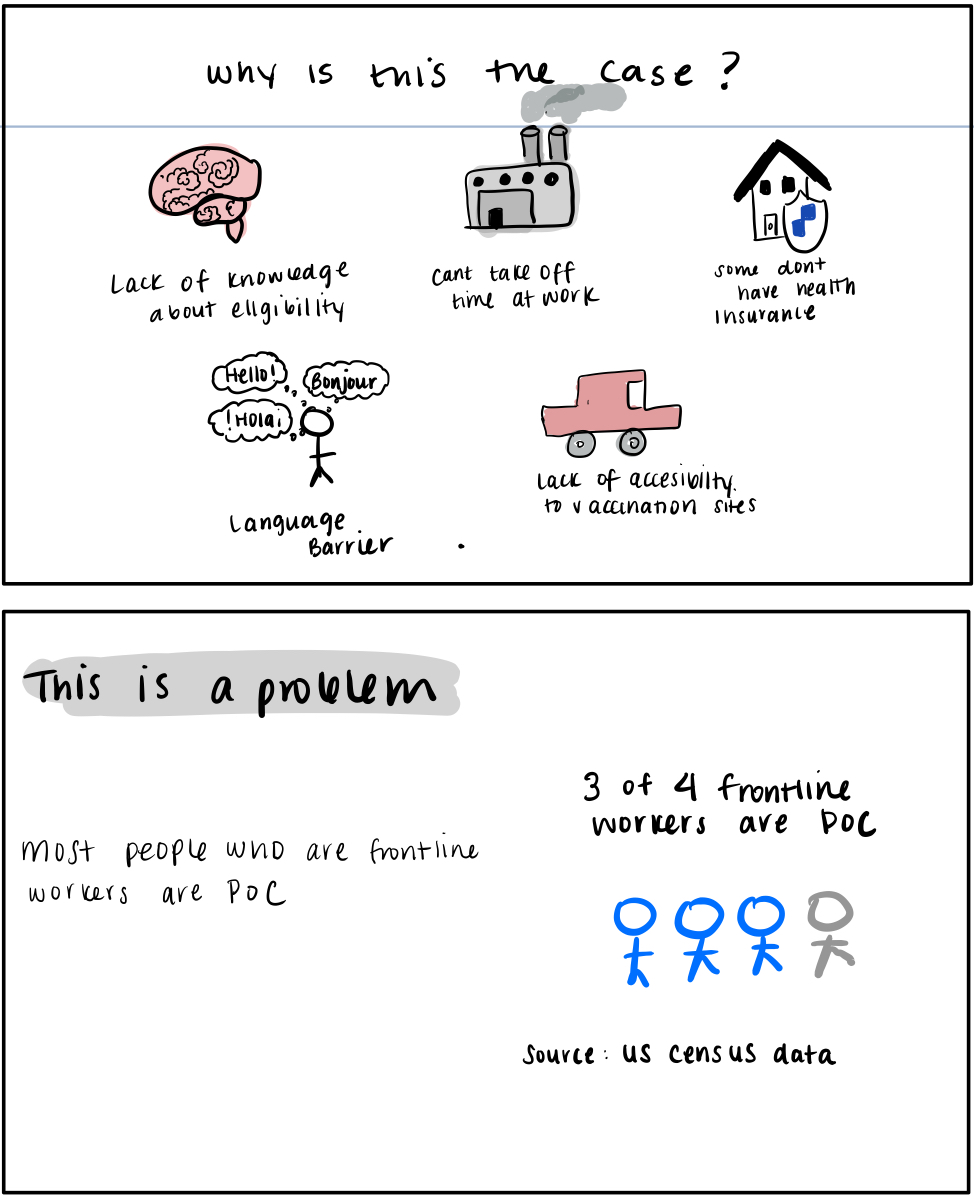 why is this the case ?
Lack of knowledge
about eligibility
cant take off
time at work
some dont
have health
insurance
Hello!
Bonjour
!Hola¡
Language
Barrier
lack of accesibilty.
to vaccination sites
This is a problem
3 of 4 frontline
workers are POC
most people who are frontline
workers are POC
source: us census data